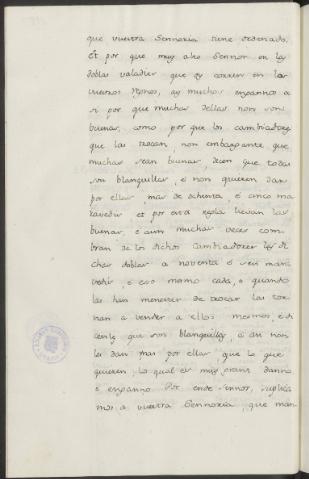 que vuestra Sennoria tiene ordenado.
Et por que muy alto Sennor en las
doblas valadies que oy corren en los
vuestros Regnos, ay muchos engannos a
si por que muchas dellas non son
buenas, como por que los cambiadores
que las trocan, non embargante que
muchas sean buenas, dicen que todas
son blanquillas, e non quieren dar
por ellas, mas de ochenta, e cinco ma
ravedis et por esta regla lievan las
buenas, e aun muchas veces com
bran de los dichos cambiadores las di
chas doblas a noventa e seys mara
vedis, e eso mismo cada, e quando
las han menester de trocar las tor
nan a vender a ellos mesmos, e di
cenle que son blanquillas, e asi non
la dan mas por ellas, que lo que
quieren, lo qual es muy grant danno
e enganno Por ende Sennor, suplica
mos a vuestra Sennoria, que man